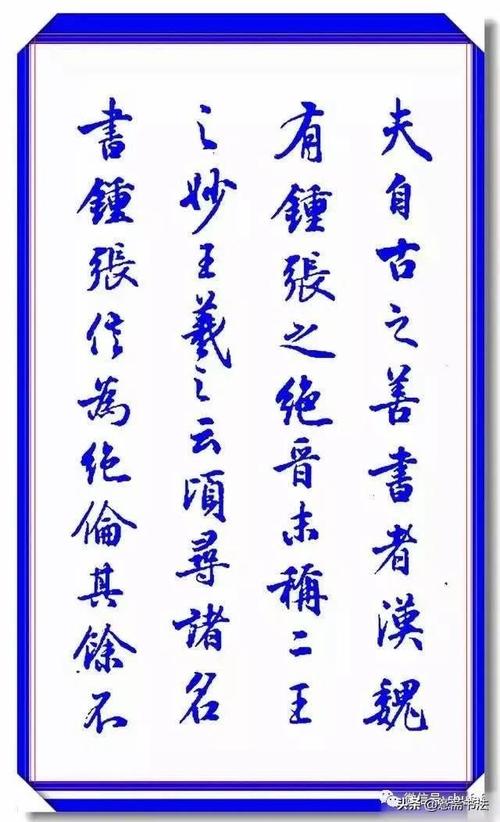 夫自古之善書者漢魏
有鍾張之絕晉末稱二王
之妙王羲之云頃尋諸名
書鍾張信為絕倫其餘不
微信号: shufa
头条@意需书法